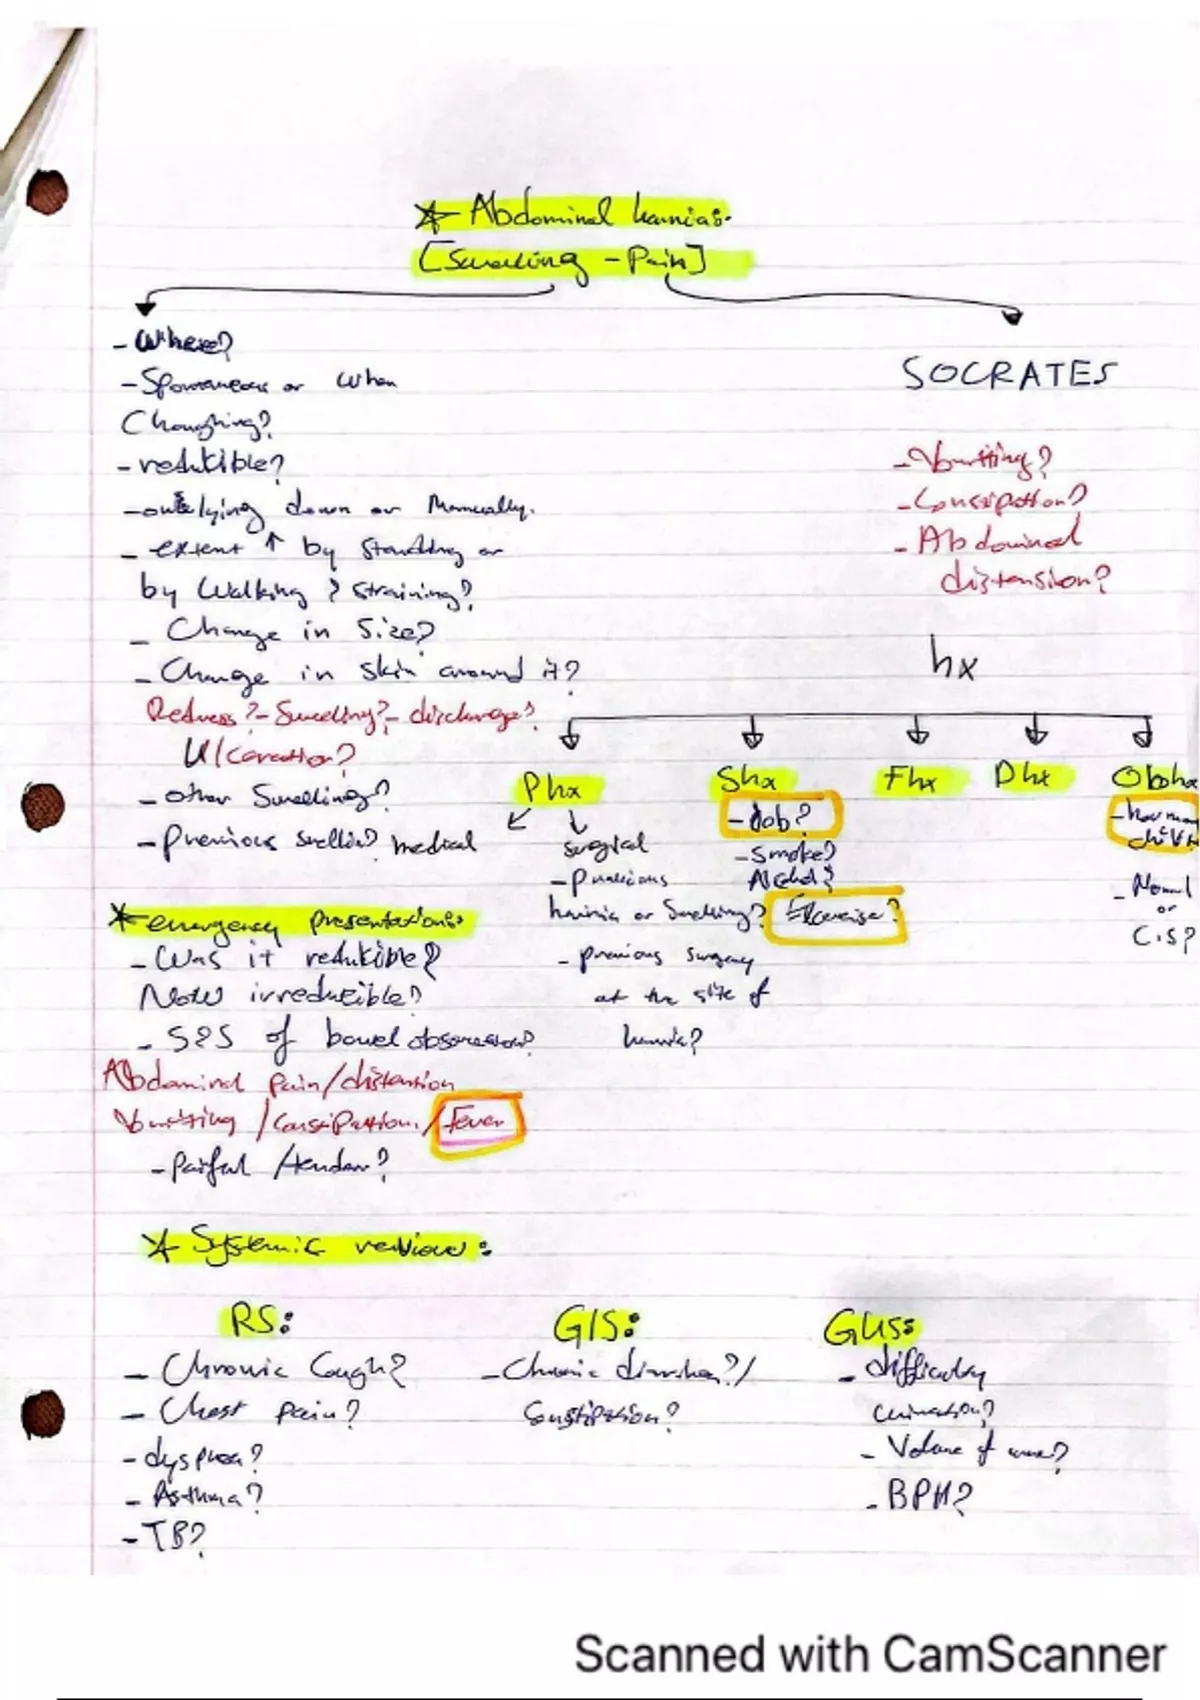 * Abdominal hernias:
[Swelling - Pain]
- Where?
- Spontaneous or when
Choughing?
- redutible?
- on lying down or Manually.
- extent ↑ by Standing or
by Walking & straining?
- Change in Size?
- Change in skin around it?
Redness? - Swelling? - discharge?
Ulceration?
- other Swellings?
- previous swellin?
SOCRATES
- Vomitting?
- Constipation?
- Abdominal
distension?
hx
Phx
medical
surgical
- previous
hernia or Swelling?
- previous surgery
at the site of
hernia?
Shx
- Job?
- Smoke?
Alcohol?
Excercise?
Fhx
Dhx
Obhx
- how man
child
- Normal
or
C.S?
* emergency presentations:
- Was it redutible?
Now irreducible?
- S&S of bowel obstruction?
Abdominal pain/distention
Vomitting /Constipation/Fever
- Painful /tender?
* Systemic review:
RS:
- Chronic Cough?
- Chest pain?
- dyspnea?
- Asthma?
- TB?
GIS:
- Chronic diarrhea?/
Constipation?
GUS:
- difficulty
urination?
- Volume of urine?
- BPH?
Scanned with CamScanner